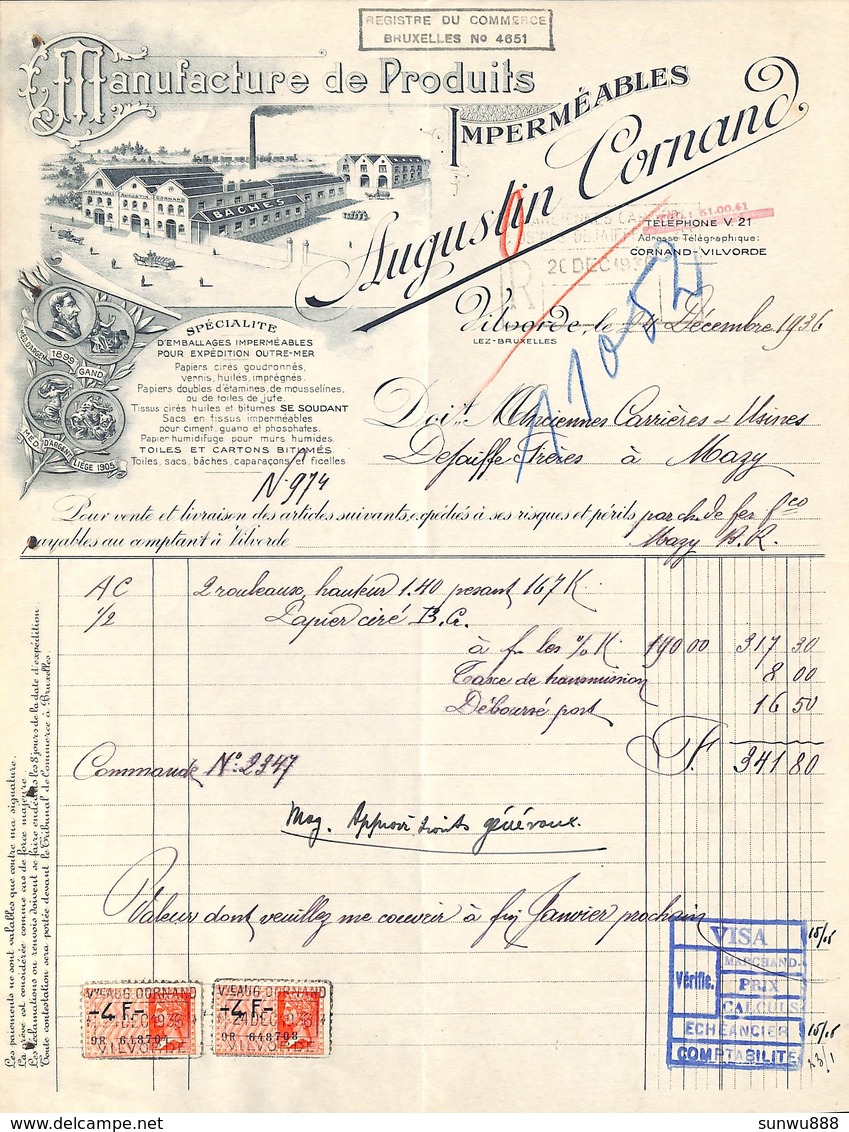 REGISTRE DU COMMERCE
BRUXELLES No 4651
Manufacture de Produits
IMPERMÉABLES
Augustin Cornand
IMPERMÉABLES AUGUSTIN CORNAND
BÂCHES
51.00.41
TÉLÉPHONE V. 21
Adresse Télégraphique:
CORNAND-VILVORDE
R
20 DEC 193
A1052
Vilvorde, le 14 Décembre 1936
LEZ-BRUXELLES
MED. D'ARGENT
1899
GAND
MED. D'ARGENT
LIÈGE 1905
SPÉCIALITÉ
D'EMBALLAGES IMPERMÉABLES
POUR EXPÉDITION OUTRE-MER
Papiers cirés goudronnés,
vernis, huilés, imprégnés.
Papiers doubles d'étamines, de mousselines,
ou de toiles de jute.
Tissus cirés huiles et bitumes SE SOUDANT
Sacs en tissus imperméables
pour ciment, guano et phosphates.
Papier humidifuge pour murs humides.
TOILES ET CARTONS BITUMÉS
Toiles, sacs, bâches, caparaçons et ficelles
Doit, Anciennes Carrières & Usines
Dejaiffe Frères à Mazy
No 974
Pour vente et livraison des articles suivants, expédiés à ses risques et périls par ch. de fer fco
payables au comptant à Vilvorde Mazy B.R.
AC 2 rouleaux, hauteur 1.40 pesant 167 K
1/2 Papier ciré B.G.
à f. les % K. 190 00 317 30
Taxe de transmission 8 00
Déboursé port 16 50
F. 341 80
Commande No. 2347
Mag. Approv. droits généraux.
Valeur dont veuillez me couvrir à fin Janvier prochain
Les paiements ne sont valables que contre ma signature.
La grève est considérée comme cas de force majeure.
Les réclamations ou renvois doivent se faire endéans les 8 jours de la date d'expédition.
Toute contestation sera portée devant le Tribunal de Commerce à Bruxelles
VISA
Vérific.
MARCHAND.
PRIX
CALCULS
ECHÉANCIER
COMPTABILITÉ
23/1
Vve AUG. CORNAND
-4 F-
DEC 1936
9R 648704
VILVORDE
Vve AUG. CORNAND
-4 F-
24 DEC 1936
9R 648703
VILVORDE
sunwu888